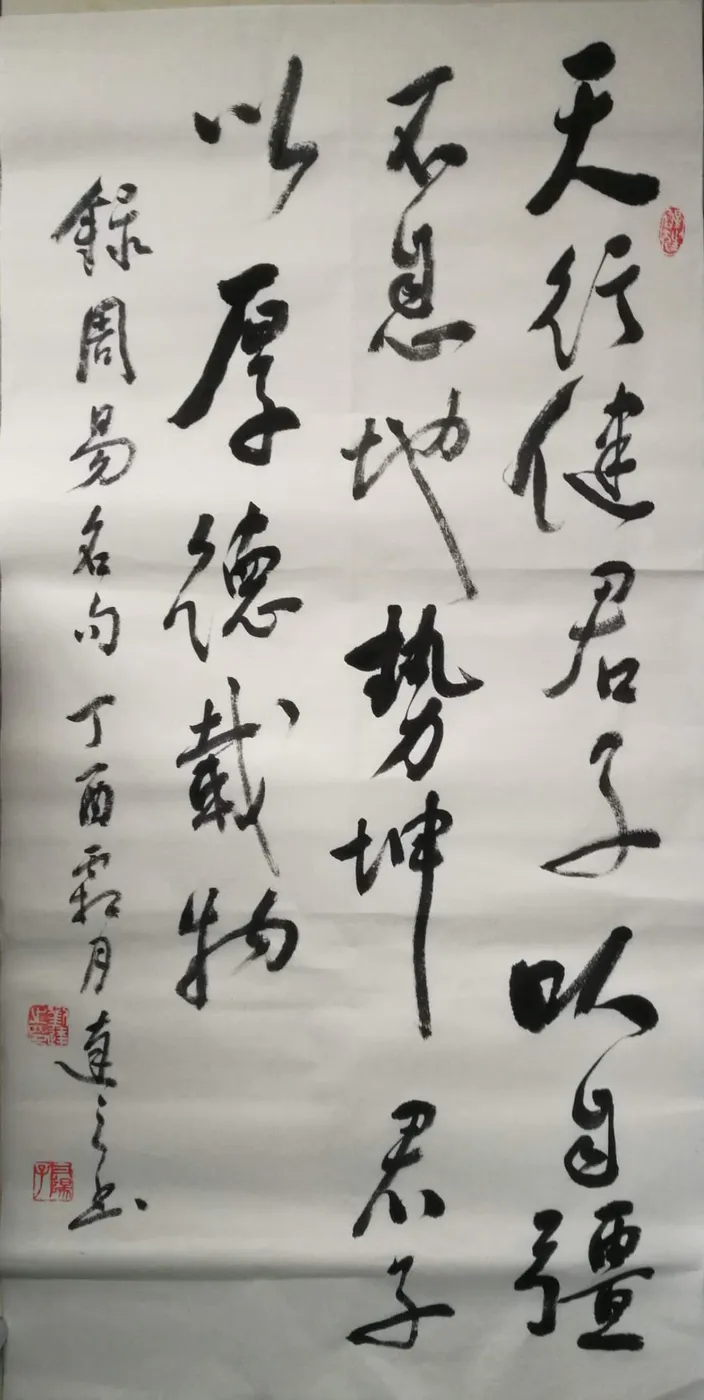 天行健君子以自彊
不息地势坤君子
以厚德载物
録周易名句丁酉霜月達之书